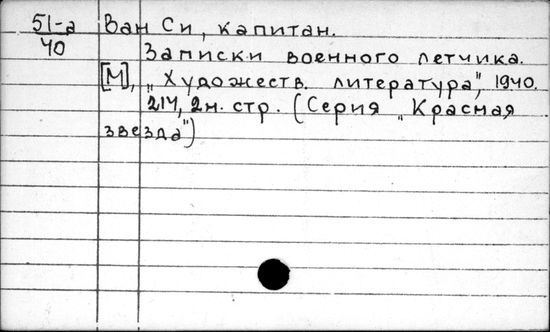 51-а Ван Си, капитан.
40 Записки военного летчика.
[М], „Художеств. литература", 1940.
214, 2 н. стр. (Серия „Красная
звезда")